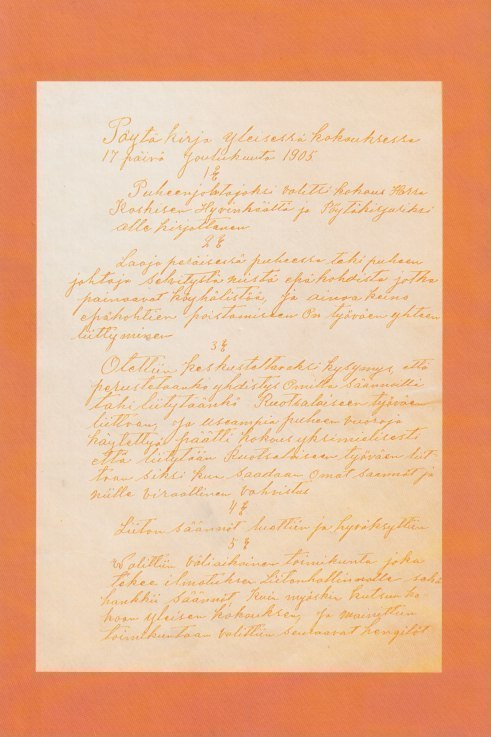 Pöytä kirja yleisessä kokouksessa
17 päivä Joulukuuta 1905
1 §
Puheenjohtajaksi valitti kokous Herra
Koskisen Hyvinkäältä ja Pöytäkirjuriksi
alle kirjottanen
2 §
Laaja peräisessä puheessa teki puheen
johtaja selitystä niistä epäkohdista jotka
painaavat köyhälistöä, ja ainoa keino
epäkohtien poistamiseen On työväen yhteen
liittyminen
3 §
Otettiin keskusteltavaksi kysymys, että
perustetaanko yhdistys Omilla säännöillä
tahi liitytäänkö Ruotsalaiseen työväen
liittoon, ja useampia puheen vuoroja
käytettyä päätti kokous yksimielisesti
että liitytään Ruotsalaiseen työväen liit-
toon siksi kun saadaan Omat säännöt ja
niille viraallinen vahvistus
4 §
Liiton säännöt luettiin ja hyväksyttiin
5 §
Valittiin väliaikainen toimikunta joka
tekee ilmotuksen Liitonhallinnolle sekä
hankkii säännöt, kuin myöskin kutsuu ko-
koon yleisen kokouksen, ja mainittuun
toimikuntaan valittiin seuraavat hengilöt